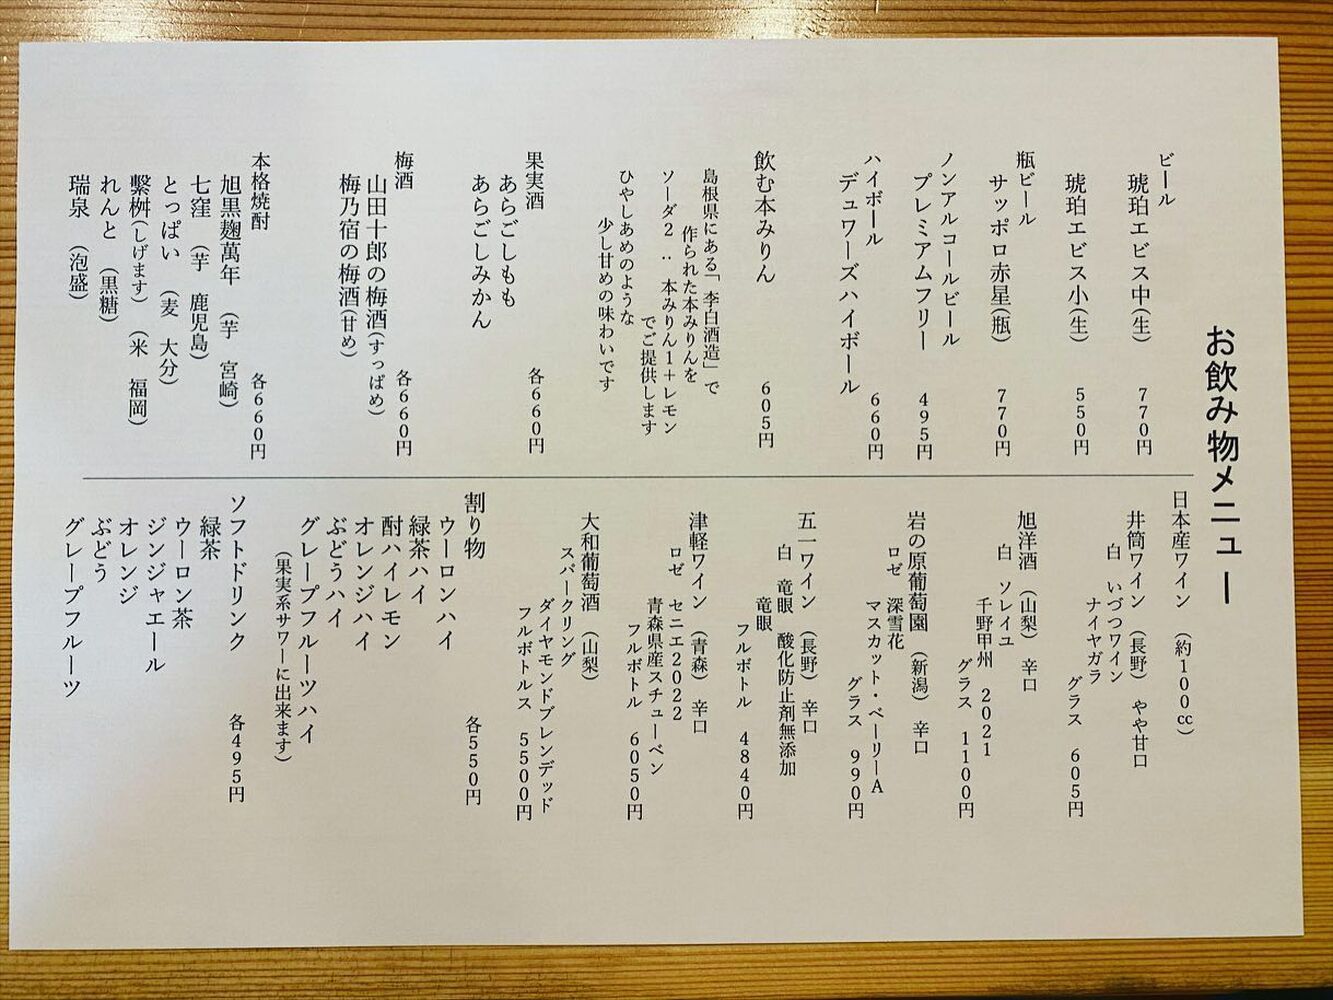 お飲み物メニュー
ビール
琥珀エビス中(生) 770円
琥珀エビス小(生) 550円
瓶ビール
サッポロ赤星(瓶) 770円
ノンアルコールビール
プレミアムフリー 495円
ハイボール 660円
デュワーズハイボール
飲む本みりん 605円
島根県にある「李白酒造」で
作られた本みりんを
ソーダ2:本みりん1+レモン
でご提供します
ひやしあめのような
少し甘めの味わいです
果実酒 各660円
あらごしもも
あらごしみかん
梅酒 各660円
山田十郎の梅酒(すっぱめ)
梅乃宿の梅酒(甘め)
本格焼酎 各660円
旭黒麹萬年 (芋 宮崎)
七窪 (芋 鹿児島)
とっぱい (麦 大分)
繫桝(しげます) (米 福岡)
れんと (黒糖)
瑞泉 (泡盛)
日本産ワイン (約100cc)
井筒ワイン (長野) やや甘口
白 いづつワイン
ナイヤガラ
グラス 605円
旭洋酒 (山梨) 辛口
白 ソレイユ
千野甲州 2021
グラス 1100円
岩の原葡萄園 (新潟) 辛口
ロゼ 深雪花
マスカット・ベーリーA
グラス 990円
五一ワイン (長野) 辛口
白 竜眼 酸化防止剤無添加
竜眼
フルボトル 4840円
津軽ワイン (青森) 辛口
ロゼ セニエ2022
青森県産スチューベン
フルボトル 6050円
大和葡萄酒 (山梨)
スパークリング
ダイヤモンドブレンデッド
フルボトルス 5500円
割り物 各550円
ウーロンハイ
緑茶ハイ
酎ハイレモン
オレンジハイ
ぶどうハイ
グレープフルーツハイ
(果実系サワーに出来ます)
ソフトドリンク 各495円
緑茶
ウーロン茶
ジンジャエール
オレンジ
ぶどう
グレープフルーツ